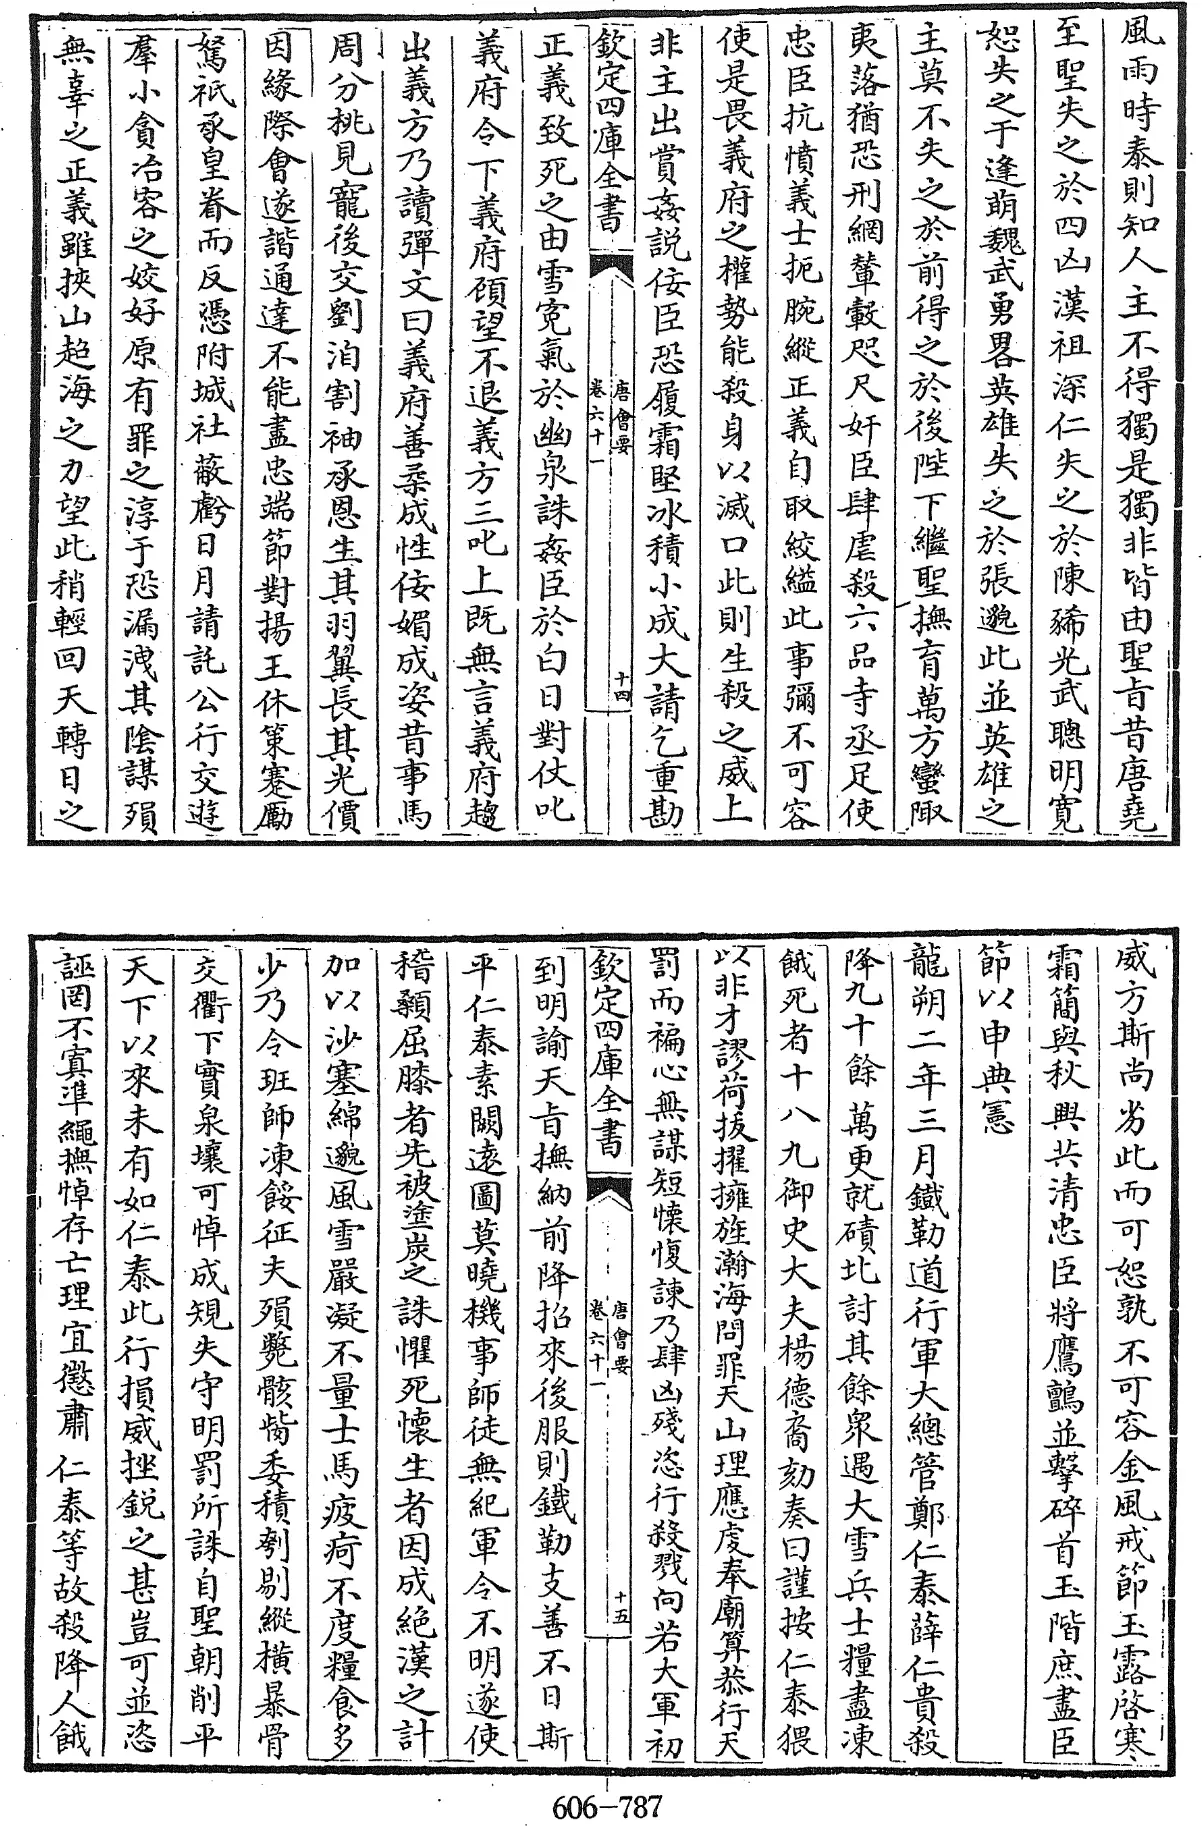 風雨時泰則知人主不得獨是獨非皆由聖旨昔唐堯
至聖失之於四凶漢祖深仁失之於陳豨光武聰明寬
恕失之于逢萌魏武勇畧英雄失之於張邈此並英雄之
主莫不失之於前得之於後陛下繼聖撫育萬方蠻陬
夷落猶恐刑網輦轂咫尺奸臣肆虐殺六品寺丞足使
忠臣抗憤義士扼腕縱正義自取絞縊此事彌不可容
使是畏義府之權勢能殺身以滅口此則生殺之威上
非主出賞姦説佞臣恐履霜堅冰積小成大請乞重勘
欽定四庫全書
唐會要
卷六十一
十四
正義致死之由雪寃氣於幽泉誅姦臣於白日對仗叱
義府令下義府頎望不退義方三叱上既無言義府趨
出義方乃讀彈文曰義府善柔成性佞媚成姿昔事馬
周分桃見寵後交劉洎割袖承恩生其羽翼長其光價
因緣際會遂諧通達不能盡忠端節對揚王休策蹇勵
駑祇承皇眷而反憑附城社蔽虧日月請託公行交遊
羣小貪冶容之姣好原有罪之淳于恐漏洩其陰謀殞
無辜之正義雖挾山超海之力望此稍輕回天轉日之
威方斯尚劣此而可恕孰不可容金風戒節玉露啓寒
霜簡與秋典共清忠臣將鷹鸇並擊碎首玉階庶盡臣
節以申典憲
龍朔二年三月鐵勒道行軍大總管鄭仁泰薛仁貴殺
降九十餘萬更就磧北討其餘衆遇大雪兵士糧盡凍
餓死者十八九御史大夫楊德裔劾奏曰謹按仁泰猥
以非才謬荷拔擢擁旌瀚海問罪天山理應䖍奉廟算恭行天
罰而褊心無謀短懷愎諫乃肆凶殘恣行殺戮向若大軍初
欽定四庫全書
唐會要
卷六十一
十五
到明諭天旨撫納前降招來後服則鐵勒支善不日斯
平仁泰素闕遠圖莫曉機事師徒無紀軍令不明遂使
稽顙屈膝者先被塗炭之誅懼死懷生者因成絶漢之計
加以沙塞綿邈風雪嚴凝不量士馬疲疴不度糧食多
少乃令班師凍餒征夫殞斃骸胔委積刳剔縱横暴骨
交衢下實泉壤可悼成規失守明罰所誅自聖朝削平
天下以來未有如仁泰此行損威挫鋭之甚豈可並恣
誣罔不寘準繩撫悼存亡理宜懲肅仁泰等故殺降人餓
606-787